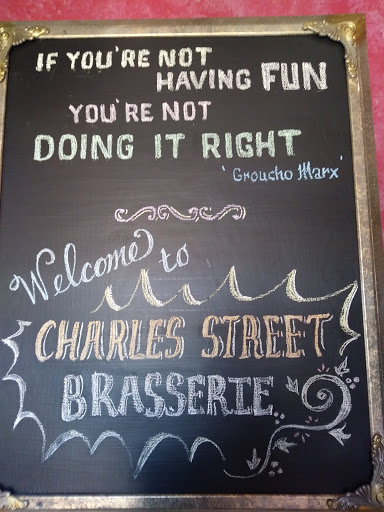 IF YOU'RE NOT
HAVING FUN
YOU'RE NOT
DOING IT RIGHT
'Groucho Marx'
Welcome to
CHARLES STREET
BRASSERIE